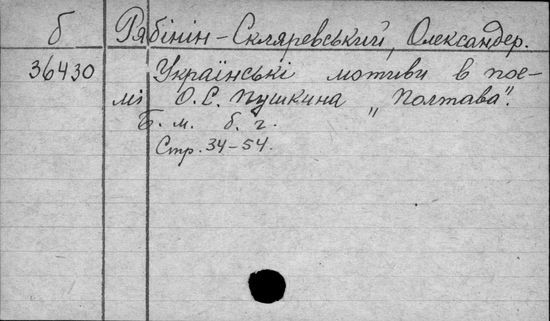 б Рябінін-Скляревський, Олександер.
36430 Українські мотиви в пое-
мі О.С. Пушкина „Полтава".
Б. м. б. г.
Стр. 34-54.